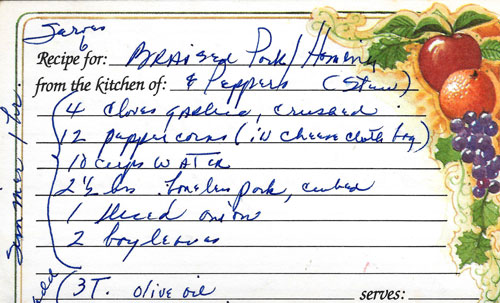 Serves
6
Recipe for: BRAISED Pork / Hominy
from the kitchen of: & Peppers (Stew)
4 cloves garlic, crushed
12 peppercorns (in cheese cloth bag)
10 cups WATER
2 ½ lbs boneless pork, cubed
1 sliced onion
2 bay leaves
3 T. olive oil
serves:
Simmer 1 hr.
add